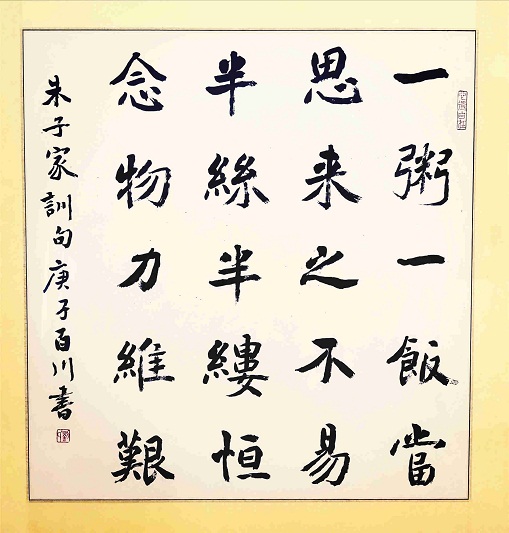 一粥一飯當
思来之不易
半絲半縷恒
念物力維艱
朱子家訓句庚子百川書